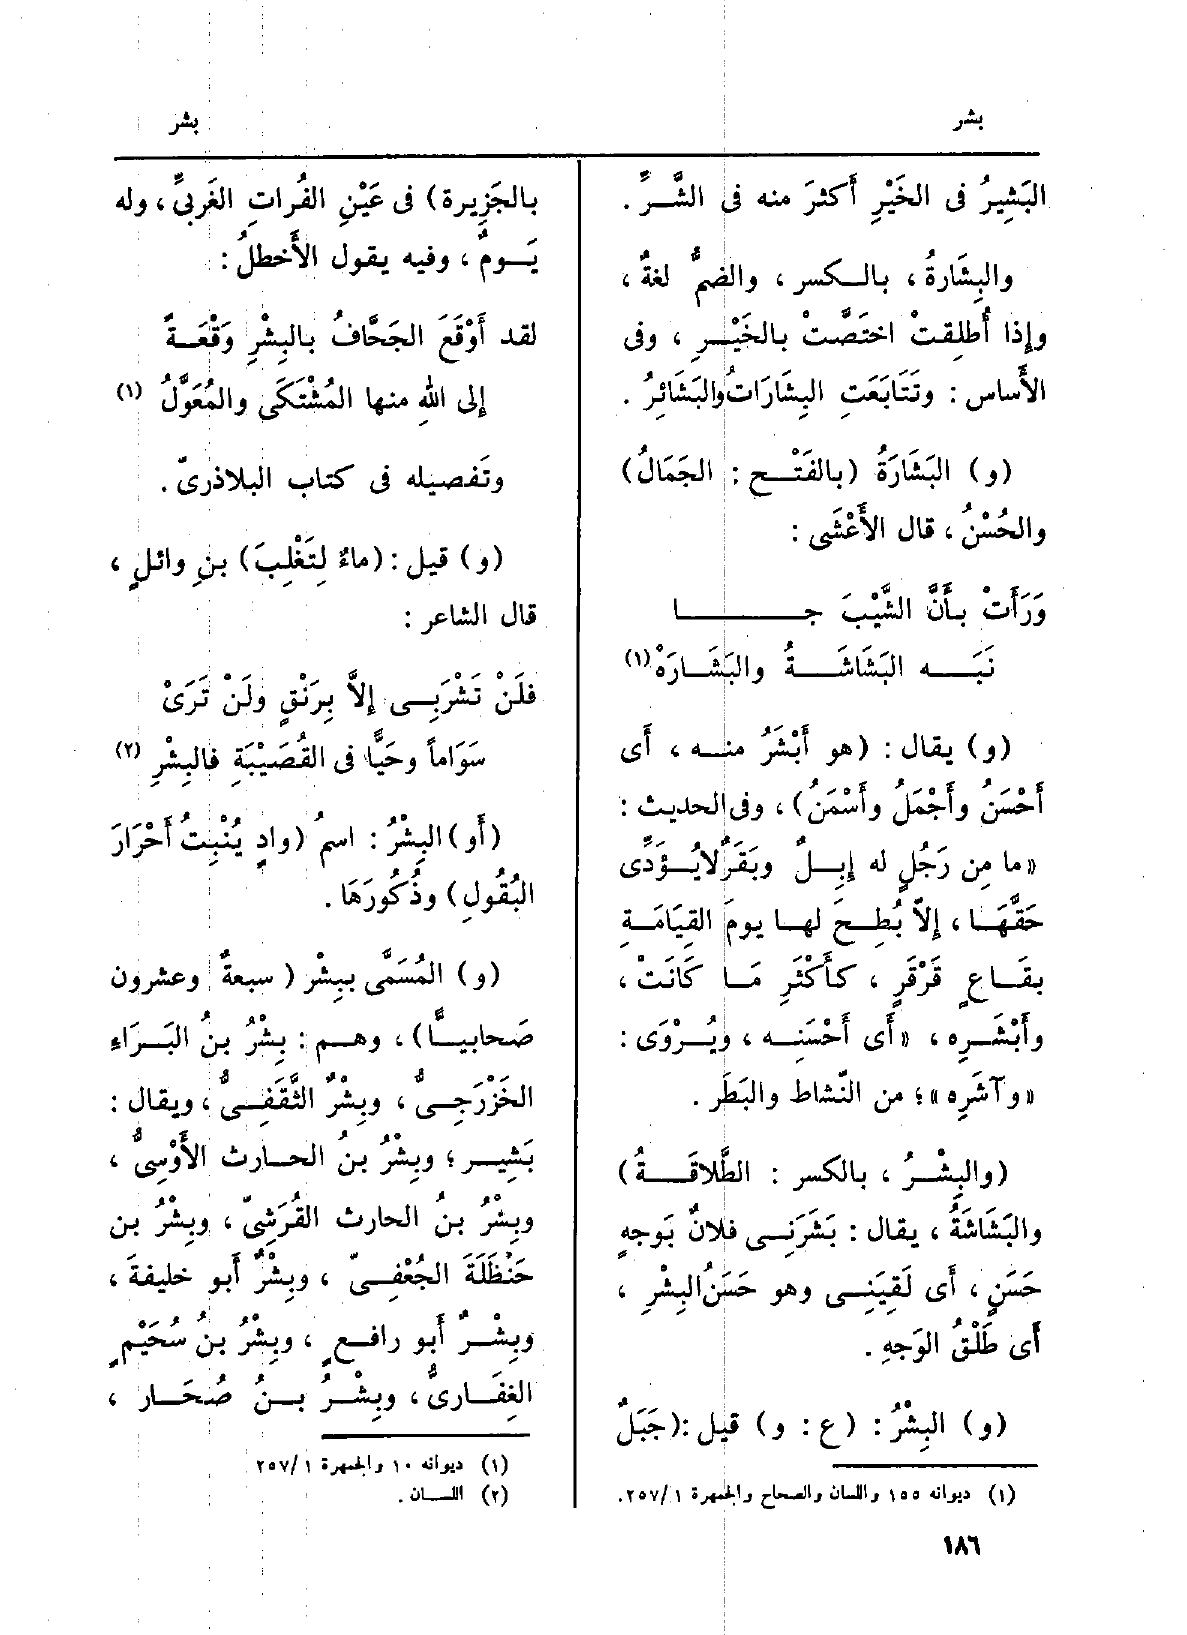 بشر
بشر
البَشِيرُ فى الخَيْرِ أَكثرَ منه فى الشَّرِّ .
والبِشَارةُ ، بالـكسر ، والضمُّ لغةٌ ،
وإذا أُطلِقتْ اختَصَّتْ بالخَيْـرِ ، وفى
الأَساس : وتَتَابَعَتِ البِشَارَاتُ والبَشَائِرُ .
(و) البَشَارَةُ (بالفَتْـح : الجَمَالُ)
والحُسْنُ ، قال الأَعْشَى :
وَرَأَتْ بـأَنَّ الشَّيْبَ جـــــا
نَبَـــه البَشَاشَـــةُ والبَشَـارَهْ (١)
(و) يقال : (هو أَبْشَرُ منـه ، أَى
أَحْسَنُ وأَجْمَلُ وأَسْمَنُ) ، وفى الحديث :
« ما مِن رَجُلٍ له إِبِـلٌ وبَقَرٌ لايُـؤَدِّى
حَقَّهَـا ، إِلاّ بُطِـحَ لهـا يومَ القِيَامَـةِ
بقَـاعٍ قَرْقَرٍ ، كـأَكْثَرِ مَـا كَانَتْ ،
وأَبْشَـرِه ، « أَى أَحْسَنِـه ، ويُـرْوَى :
« وآشَرِه » ؛ من النَّشاط والبَطَر .
(والبِشْـرُ ، بالكسر : الطَّلاقَـةُ)
والبَشَاشَةُ ، يقال : بَشَرَنِـى فلانٌ بَوجهٍ
حَسَنٍ ، أَى لَقِيَنِـى وهو حَسَنُ البِشْرِ ،
أَى طَلْقُ الوَجهِ .
(و) البِشْرُ : (ع : و) قيل : (جَبَلٌ
(١) ديوانه ١٥٥ واللسان والصحاح والجمهرة ٢٥٧/١.
بالجَزِيرة) فى عَيْنِ الفُراتِ الغَربىِّ ، وله
يَـومٌ ، وفيه يقول الأَخطلُ :
لقد أَوْقَعَ الجَحَّافُ بالبِشْرِ وَقْعَـةً
إلى اللهِ منها المُشْتكَى والمُعَوَّلُ (١)
وتَفصيله فى كتاب البلاذرىّ .
(و) قيل : (ماءٌ لِتَغْلِبَ) بنِ وائـلٍ ،
قال الشاعر :
فلَنْ تَشْرَبِـى إلاَّ بِرَنْقٍ ولَنْ تَرَىْ
سَوَاماً وحَيًّا فى القُصَيْبَةِ فالبِشْرِ (٢)
(أَو) البِشْرُ : اسمُ (وادٍ يُنْبِتُ أَحْرَارَ
البُقُولِ) وذُكُورَهَا .
(و) المُسَمَّى ببِشْر ( سبعةٌ وعشرون
صَحابيـًّا) ، وهـم : بِشْرُ بنُ البَـرَاءِ
الخَزْرَجِـىُّ ، وبِشْرٌ الثَّقَفِـىُّ ، ويقال :
بَشِيـر ؛ وبِشْرُ بنُ الحـارث الأَوْسِىُّ ،
وبِشْرُ بنُ الحارث القُرَشِىّ ، وبِشْرُ بن
حَنْظَلَةَ الجُعْفِـىّ ، وبِشْرٌ أَبو خليفةَ ،
وبِشْـرٌ أَبو رافـعٍ ، وبِشْرُ بنُ سُحَيْمٍ
الغِفَـارىُّ ، وبِشْـرُ بـنُ صُحَـار ،
(١) ديوانه ١٠ والجمهرة ٢٥٧/١
(٢) اللسـان .
١٨٦